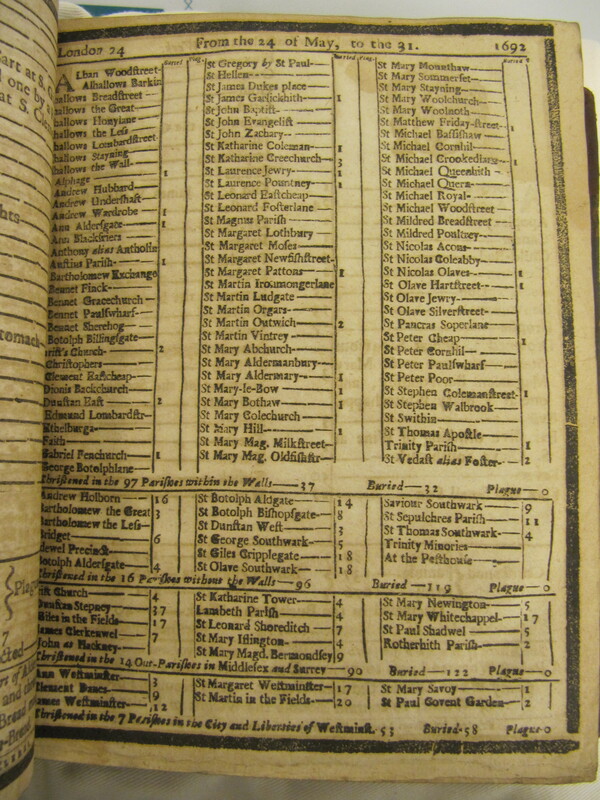 London 24 From the 24 of May, to the 31. 1692
Buried Plag.
Alban Woodstreet
Alhallows Barkin
hallows Breadstreet
hallows the Great
hallows Honylane
hallows the Less
hallows Lombardstreet
hallows Stayning
hallows the Wall 1
Alphage
Andrew Hubbard
Andrew Undershaft
Andrew Wardrobe 1
Ann Aldersgate 1
Ann Blackfriers
Anthony alias Antholin
Austins Parish 1
Bartholomew Exchange
Bennet Finck
Bennet Gracechurch
Bennet Paulswharf
Bennet Sherehog
Botolph Billingsgate
rist's Church 2
Christophers
Clement Eastcheap
Dionis Backchurch
Dunstan East 2
Edmund Lombardstr
Ethelburga
Faith
Gabriel Fenchurch 1
George Botolphlane
Buried Plag.
St Gregory by St Paul
St Hellen
St James Dukes place
St James Garlickhith 1
St John Baptist
St John Evangelist
St John Zachary
St Katharine Coleman 1
St Katharine Creechurch 3
St Laurence Jewry 1
St Laurence Pountney 1
St Leonard Eastcheap
St Leonard Fosterlane
St Magnus Parish
St Margaret Lothbury
St Margaret Moses
St Margaret Newfishstreet
St Margaret Pattons 1
St Martin Ironmongerlane
St Martin Ludgate
St Martin Orgars
St Martin Outwich 2
St Martin Vintrey
St Mary Abchurch
St Mary Aldermanbury
St Mary Aldermary 1
St Mary-le-Bow 1
St Mary Bothaw 1
St Mary Colechurch
St Mary Hill 1
St Mary Mag. Milkstreet
St Mary Mag. Oldfishstr
Buried
St Mary Mounthaw
St Mary Sommerset
St Mary Stayning
St Mary Woolchurch
St Mary Woolnoth
St Matthew Friday-street 1
St Michael Bassishaw
St Michael Cornhil
St Michael Crookedlane 1
St Michael Queenhith
St Michael Quern
St Michael Royal
St Michael Woodstreet
St Mildred Breadstreet
St Mildred Poultrey
St Nicolas Acons
St Nicolas Coleabby
St Nicolas Olaves 1
St Olave Hartstreet 1
St Olave Jewry
St Olave Silverstreet
St Pancras Soperlane
St Peter Cheap 1
St Peter Cornhil
St Peter Paulswharf
St Peter Poor
St Stephen Colemanstreet 1
St Stephen Walbrook
St Swithin
St Thomas Apostle
Trinity Parish 1
St Vedast alias Foster 2
Christened in the 97 Parishes within the Walls 37 Buried 32 Plague 0
Andrew Holborn 16
Bartholomew the Great 3
Bartholomew the Less
Bridget 6
dewel Precinct
Botolph Aldersgate 4
St Botolph Aldgate 14
St Botolph Bishopsgate 8
St Dunstan West 3
St George Southwark 5
St Giles Cripplegate 18
St Olave Southwark 18
Saviour Southwark 9
St Sepulchres Parish 11
St Thomas Southwark 4
Trinity Minories
At the Pesthouse
Christened in the 16 Parishes without the Walls 96 Buried 119 Plague 0
rist Church 4
Dunstan Stepney 37
Giles in the Fields 17
James Clerkenwel 7
John at Hackney
St Katharine Tower 4
Lambeth Parish 4
St Leonard Shoreditch 7
St Mary Islington 4
St Mary Magd. Bermondsey 9
St Mary Newington 5
St Mary Whitechappel 17
St Paul Shadwel 5
Rotherhith Parish 2
Christened in the 14 Out-Parishes in Middlesex and Surrey 90 Buried 122 Plague 0
Ann Westminster 3
Clement Danes 9
James Westminster 12
St Margaret Westminster 17
St Martin in the Fields 20
St Mary Savoy 1
St Paul Covent Garden 2
Christened in the 7 Parishes in the City and Liberties of Westminst. 53 Buried 58 Plague 0